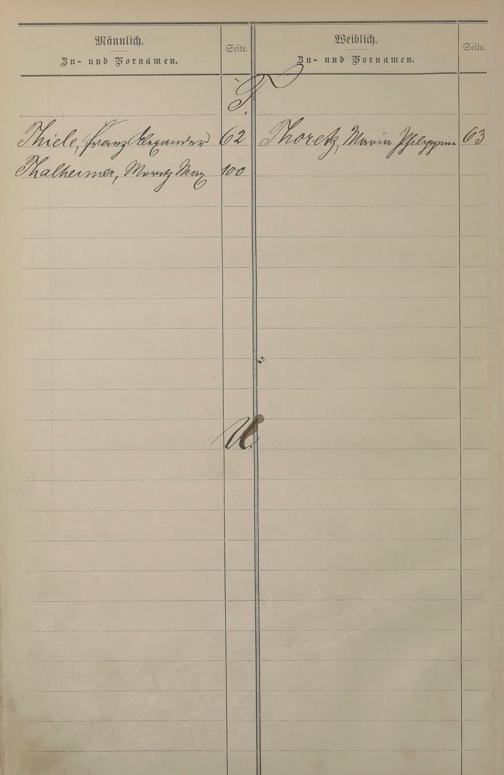 Männlich.
Zu- und Vornamen.
Seite.
Weiblich.
Zu- und Vornamen.
Seite.
T.
Thiele, Franz Alexander 62
Thoretz, Maria Philippine 63
Thalheimer, Moritz Max 100
U.